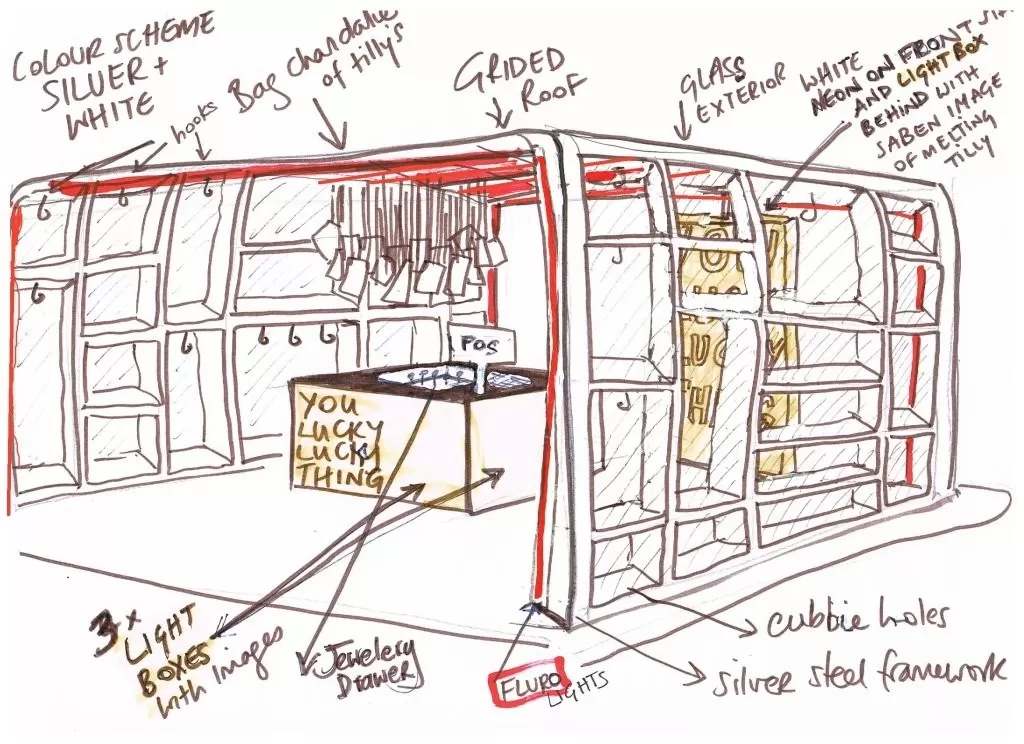 COLOUR SCHEME
SILVER +
WHITE
hooks
Bag chandalier
of tilly's
GRIDED
ROOF
GLASS
EXTERIOR
WHITE
NEON ON FRONT
AND LIGHTBOX
BEHIND WITH
SABEN IMAGE
OF MELTING
TILLY
POS
YOU
LUCKY
LUCKY
THING
YOU
LUCKY
3x
LIGHT
BOXES
with images
Jewelery
Drawer
FLURO
LIGHTS
cubbie holes
silver steel framework